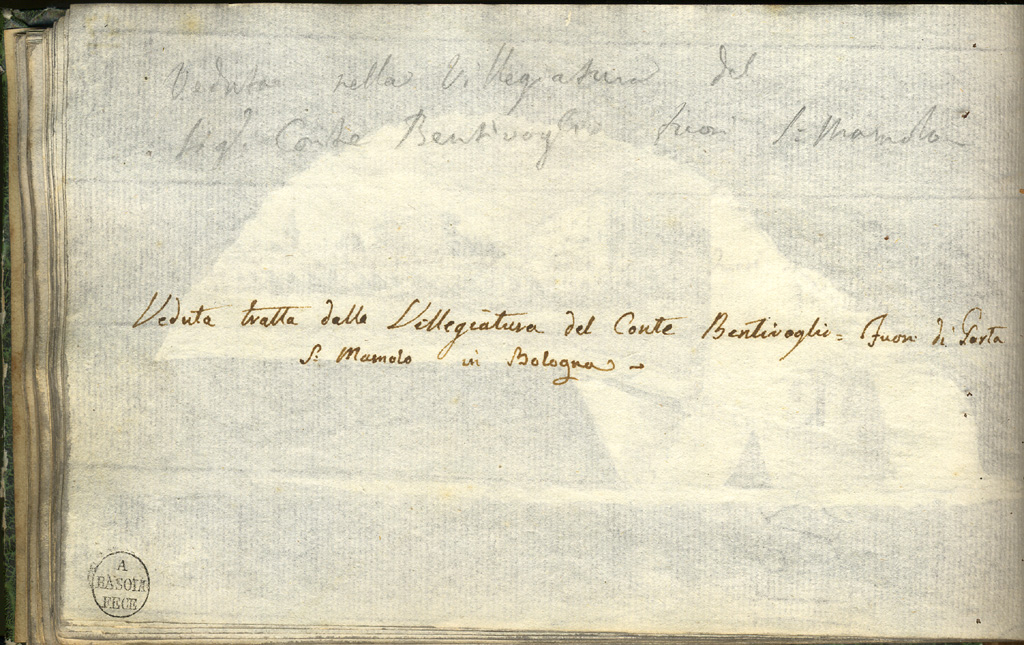 Veduta nella Villegiatura del
Sig.r Conte Bentivogli fuori S: Mamolo
Veduta tratta dalla Villegiatura del Conte Bentivogli = Fuori di Porta
S: Mamolo in Bologna
A
BASOLI
FECE